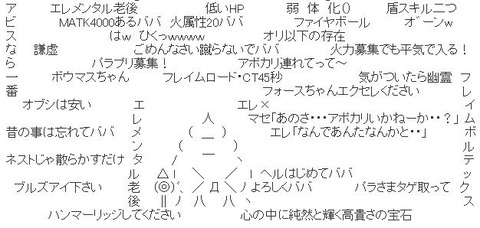 ア エレメンタル老後 低いHP 弱体化() 盾スキル二つ
ビ MATK4000あるババ 火属性20ババ ファイヤボール ズーンw
な はw ひくっwwww オリ以下の存在
ら 謙虚 ごめんなさい蹴らないでババ 火力募集でも平気で入る!
一 パラプリ募集! アポカリ連れてって~
番 ボウマスちゃん フレイムロード・CT45秒 気がついたら幽霊 フ
フォースちゃんエクセレください レ
オブシは安い エ エレ× イ
レ 人 マセ「あのさ・・・アポカリいかねーか・・?」 ム
昔の事は忘れてババ メ ( ー ) エレ「なんであんたなんかと・・」 ボ
ン ( ) ル
ネストじゃ散らかすだけ タ / ー ヽ テ
ル △l \ / lヘルはじめてババ ッ
ブルズアイ下さい 老 (◎)ヽ / Д \ノよろしくババ パラさまタゲ取って ク
後 ||ノ 八 八ヽ ス
ハンマーリッジしてください 心の中に純然と輝く高貴さの宝石